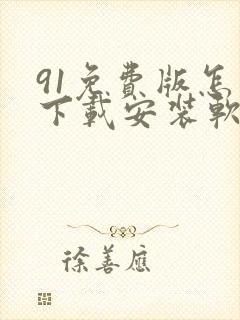 91免費版怎
下載安裝軟
徐善應